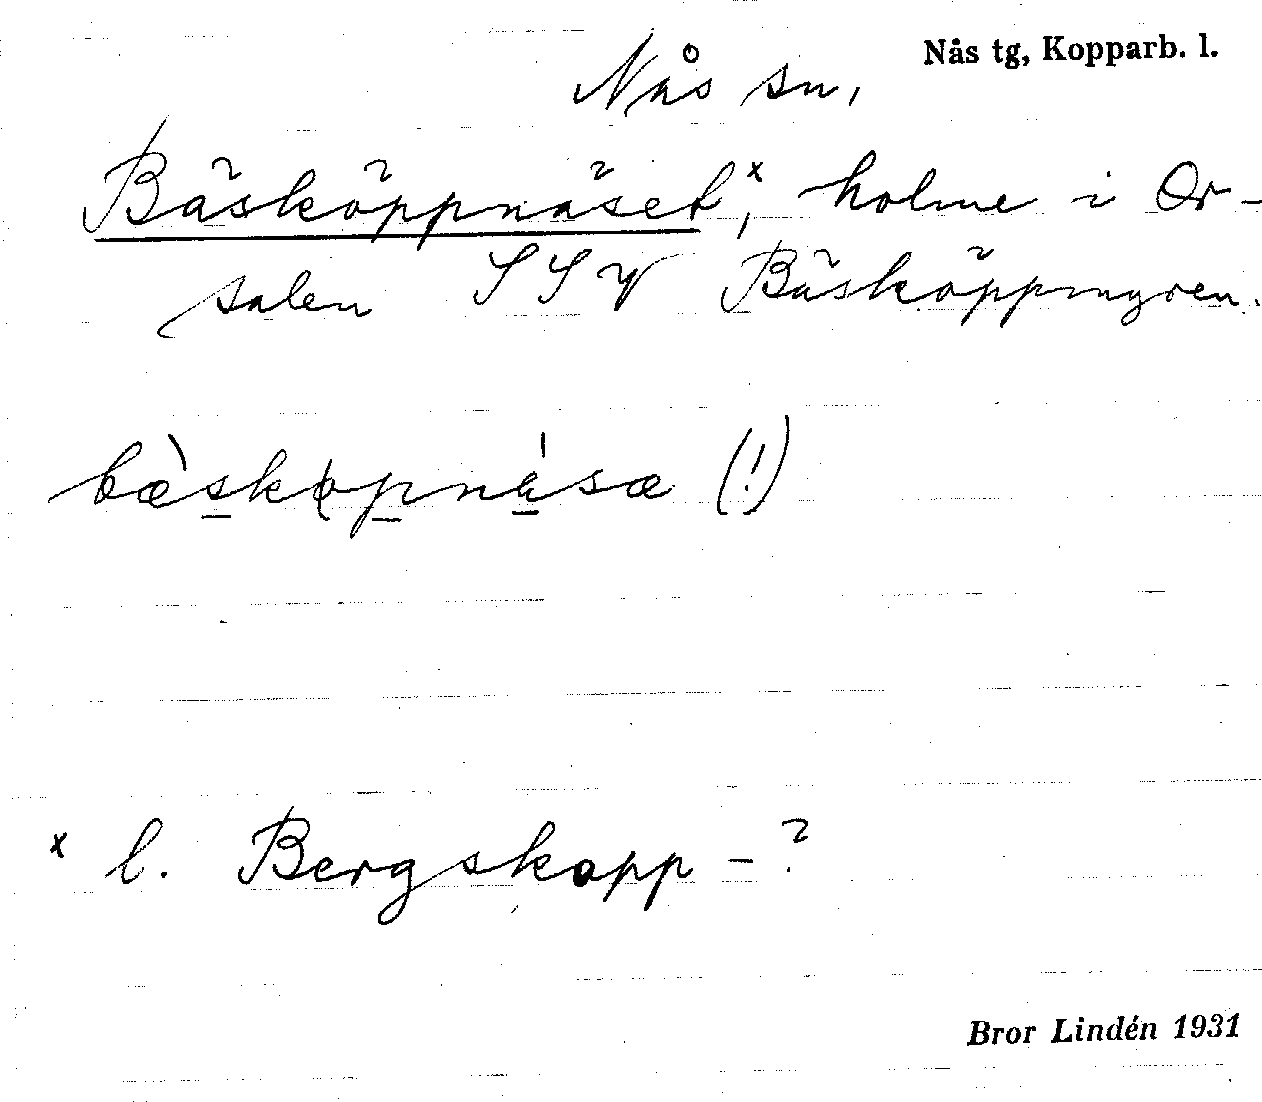 Nås tg, Kopparb. l.
Nås sn,
Bäsköppnäset,x holme i Or-
salen SSV Bäsköppmyren.
bæ̀skopnásæ (!)
x l. Bergskopp-?
Bror Lindén 1931